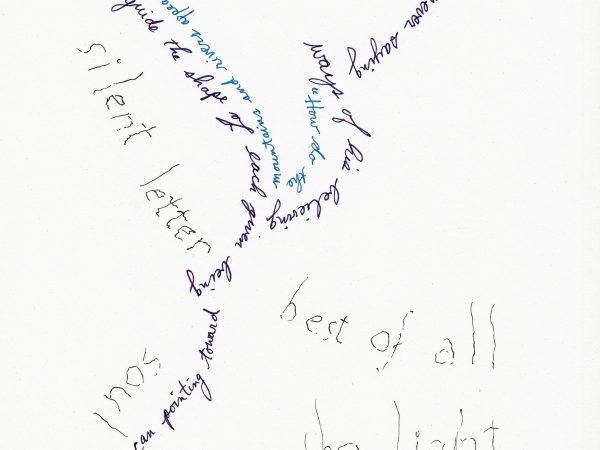 never saying
ways of his believing
"How do the
mountains and rivers
guide the shape of each given being
silent letter
can pointing toward
soul
best of all
the light